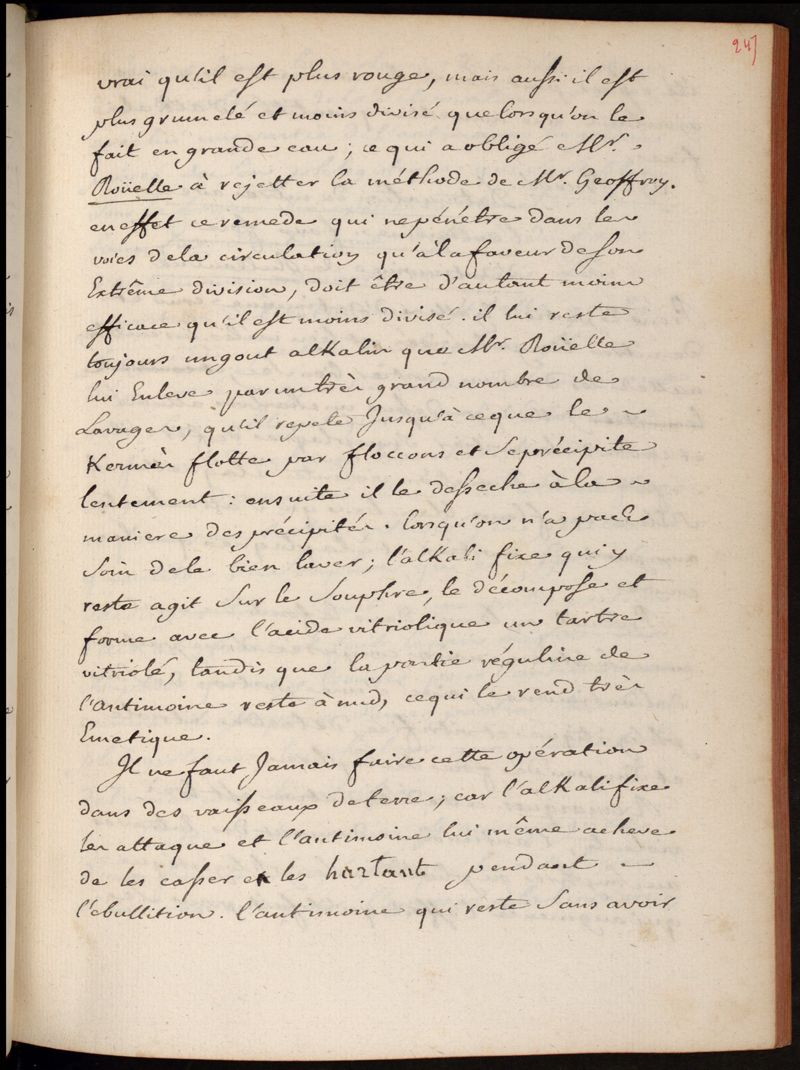 247
vrai qu'il est plus rouge, mais aussi il est
plus grumelé et moins divisé que lorsqu'on le
fait en grande eau ; ce qui a obligé Mr.
Roüelle à rejetter la méthode de Mr. Geoffroy.
en effet ce remede qui ne pénétre dans les
voies de la circulation qu'à la faveur de son
Extrême division, doit être d'autant moins
efficace qu'il est moins divisé. il lui reste
toujours un gout alKalin que Mr. Roüelle
lui Enleve par un très grand nombre de
Lavages, qu'il repete Jusqu'à ce que le
Kermès flotte par floccons et se précipite
lentement : ensuite il le desseche à la
maniere des précipités. lorsqu'on n'a pas
soin de le bien laver ; l'alKali fixe qui y
reste agit sur le souphre, le décompose et
forme avec l'acide vitriolique un tartre
vitriolé, tandis que la partie réguline de
l'antimoine reste à nud, ce qui le rend très
Emetique.
Il ne faut Jamais faire cette opération
dans des vaisseaux de terre ; car l'alKali fixe
les attaque et l'antimoine lui même acheve
de les casser en les hurtant pendant
l'ebullition. l'antimoine qui reste sans avoir